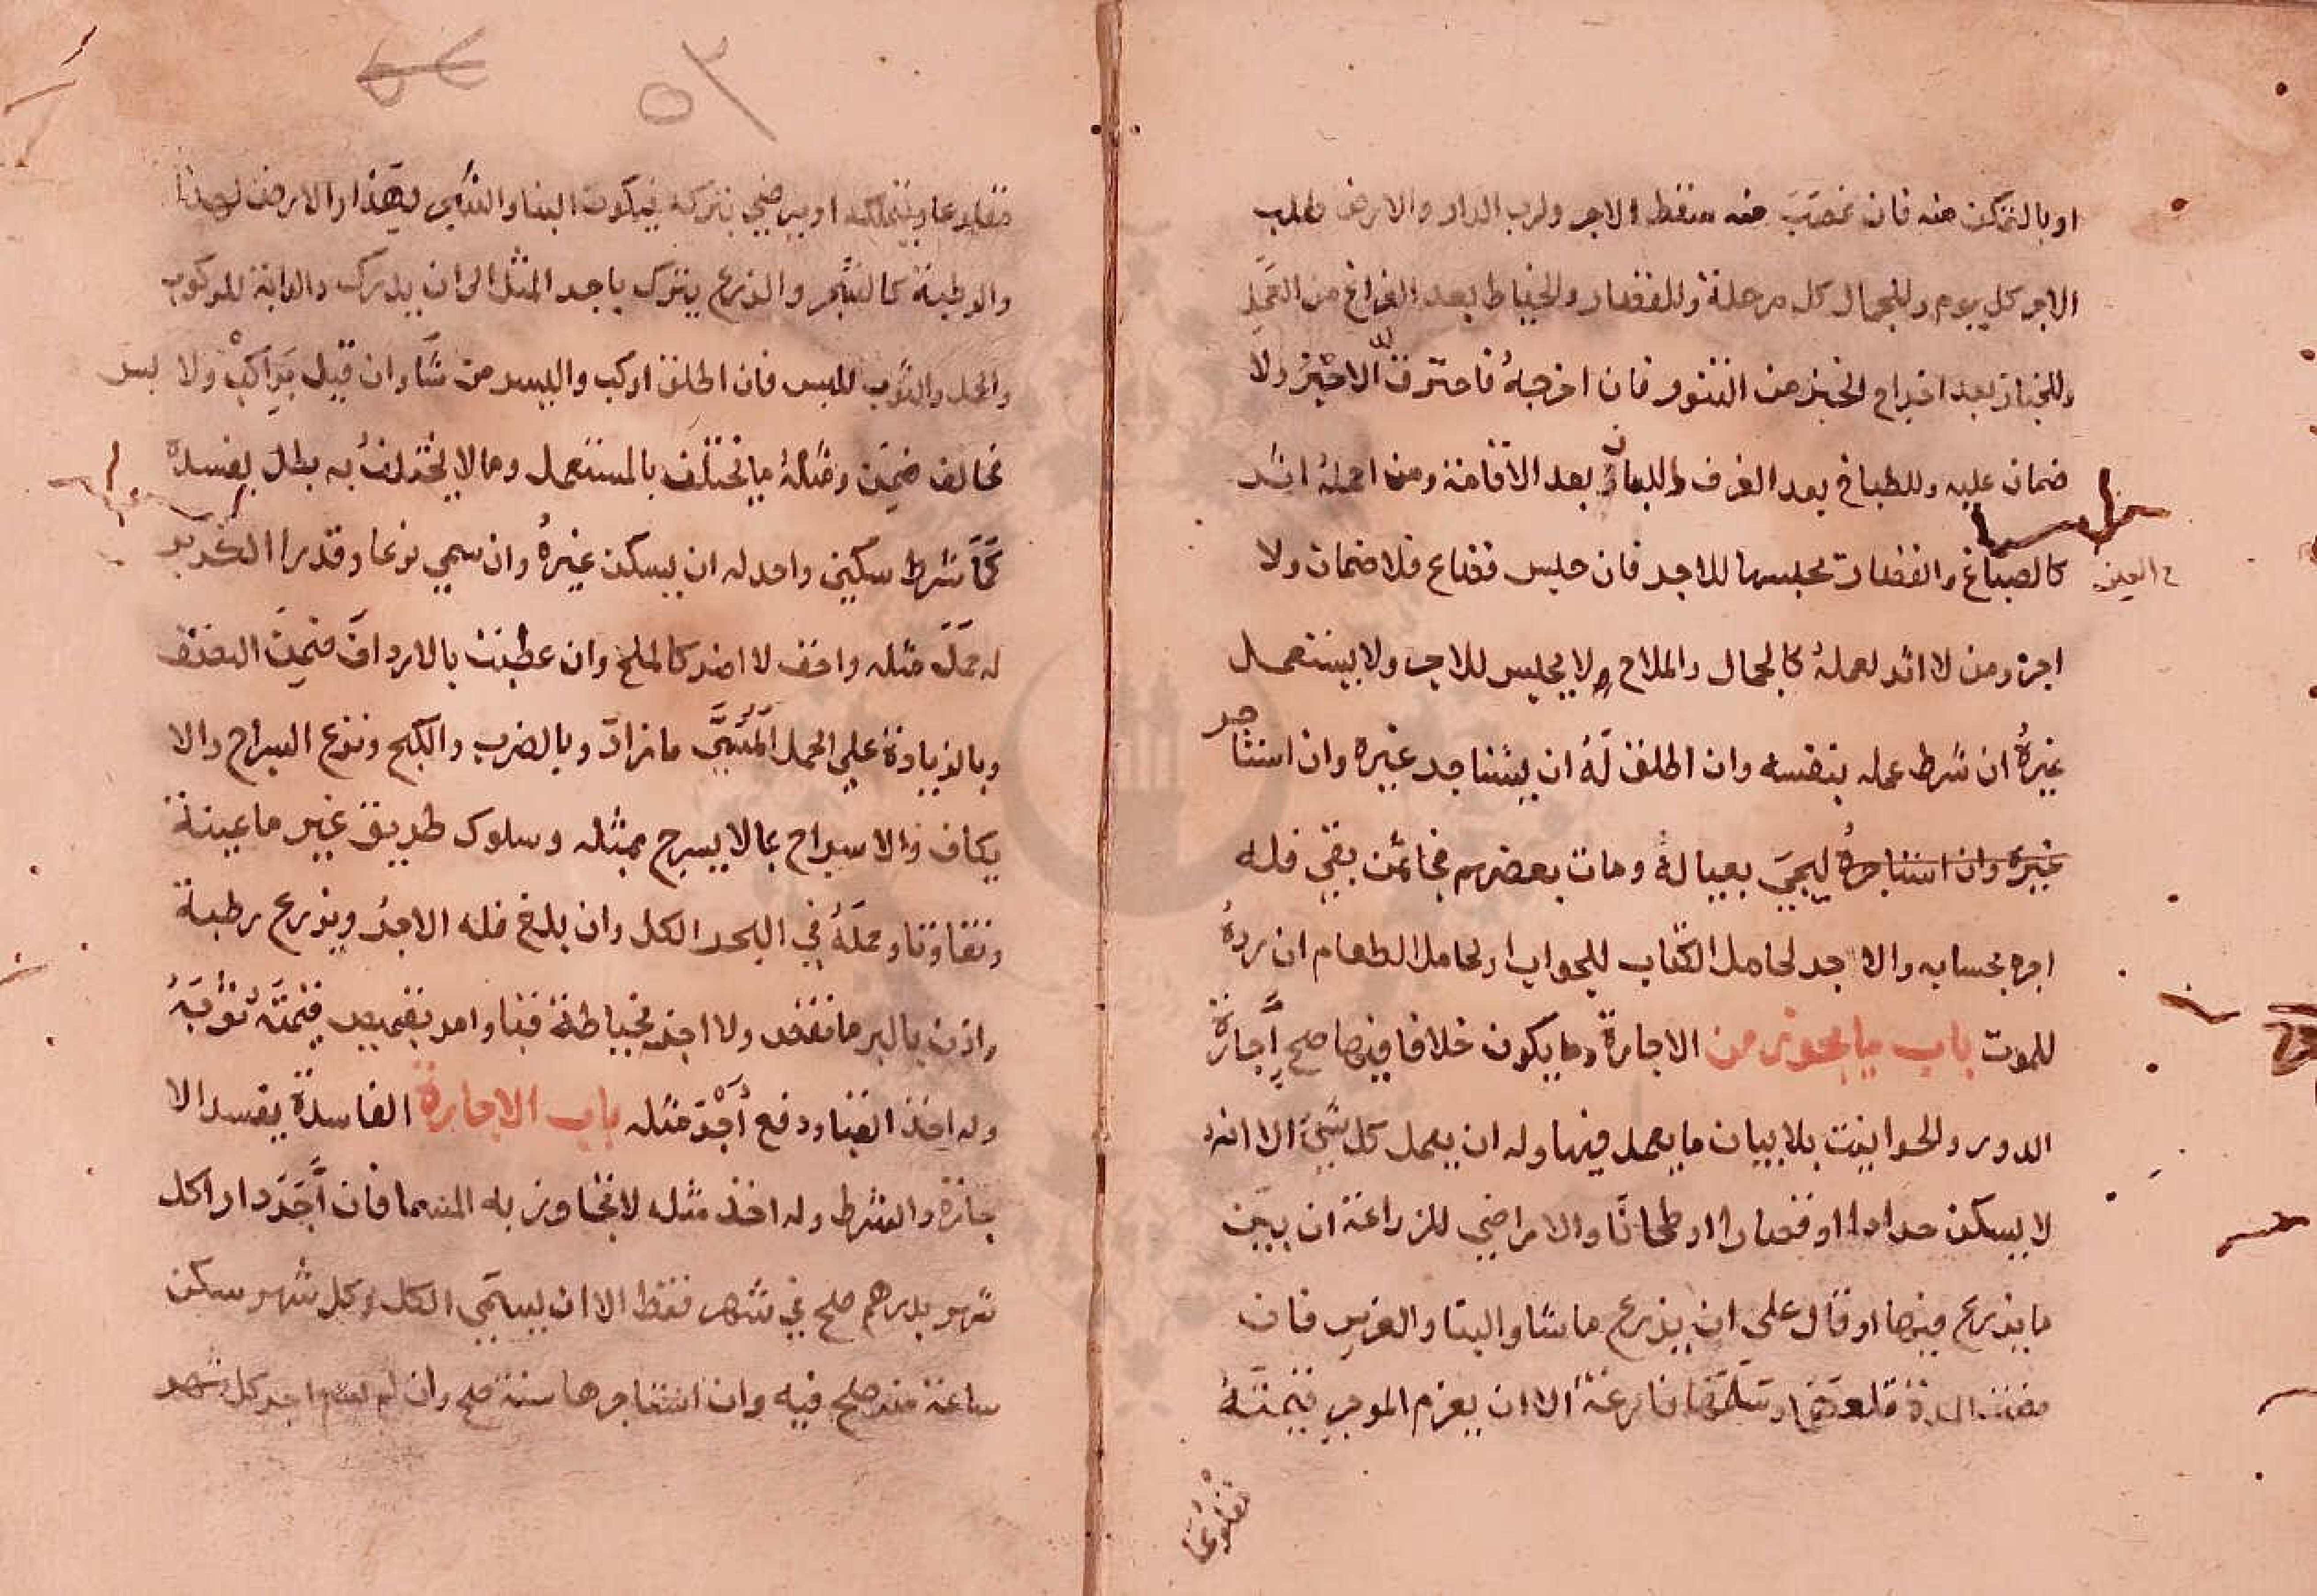 او بالتمكن منه فان غصبت منه سقط الاجر ولرب الدار والارض طلب
الاجر كل يوم وللجمال كل مرحلة وللقصار والخياط بعد الفراغ من العمل
وللخباز بعد اخراج الخبز من التنور فان اخرجه فاحترق له الاجر ولا
ضمان عليه وللطباخ بعد الغرف وللبان بعد الاقامة ومن لعمله اثر
في العين كالصباغ والقصار يحبسها للاجر فان حبس فضاع فلا ضمان ولا
اجرة ومن لا اثر لعمله كالحمال والملاح لا يحبس للاجر ولا يستعمل
غيره ان شرط عمله بنفسه وان اطلق له ان يستاجر غيره وان استاجر
غيره وان استاجره ليجي بعياله ومات بعضهم فجا بمن بقي فله
اجره بحسابه ولا اجر لحامل الكتاب للجواب او لحامل الطعام ان رده
للموت باب ما يجوز من الاجارة وما يكون خلافا فيها صح اجارة
الدور والحوانيت بلا بيان ما يعمل فيها وله ان يعمل كل شي الا انه
لا يسكن حدادا او قصارا او طحانا والاراضي للزراعة ان بين
ما يزرع فيها او قال على ان يزرع ما شا والبنا والغرس فان
مضت المدة قلعهما وسلمها فارغة الا ان يغرم الموجر قيمته
مقلوعا
مقلوعا ويتملكه او يرضي بتركه فيكون البنا والغرس لهذا والارض لهذا
والرطبة كالشجر والزرع يترك باجر المثل الى ان يدرك والدابة للركوب
والحمل والثوب للبس فان اطلق اركب والبس من شا وان قيل براكب ولا بس
فخالف ضمن ومثله ما يختلف بالمستعمل وما لا يختلف به بطل
كما شرط سكنى واحد له ان يسكن غيره وان سمي نوعا وقدرا ككر بر
له حمل مثله واخف لا اضر كالملح وان عطبت بالارداف ضمن النصف
وبالزيادة على الحمل المسمى ما زاد وبالضرب والكبح ونزع السراج والا
يكاف والاسراج بما لا يسرج بمثله وسلوك طريق غير ما عينه
وتفاوتا وحمله في البحر الكل وان بلغ فله الاجر وبزرع رطبة
واذن بالبر ما نقص ولا اجر بخياطة قبا وامر بقميص قيمة ثوبه
وله اخذ القبا ودفع اجر مثله باب الاجارة الفاسدة يفسد الا
جارة والشرط وله اجر مثله لا يتجاوز به المسما فان اجر دارا كل
شهر بدرهم صح في شهر فقط الا ان يسمي الكل وكل شهر سكن
ساعة منه صح فيه وان استاجرها سنة صح وان لم اجر كل شهر